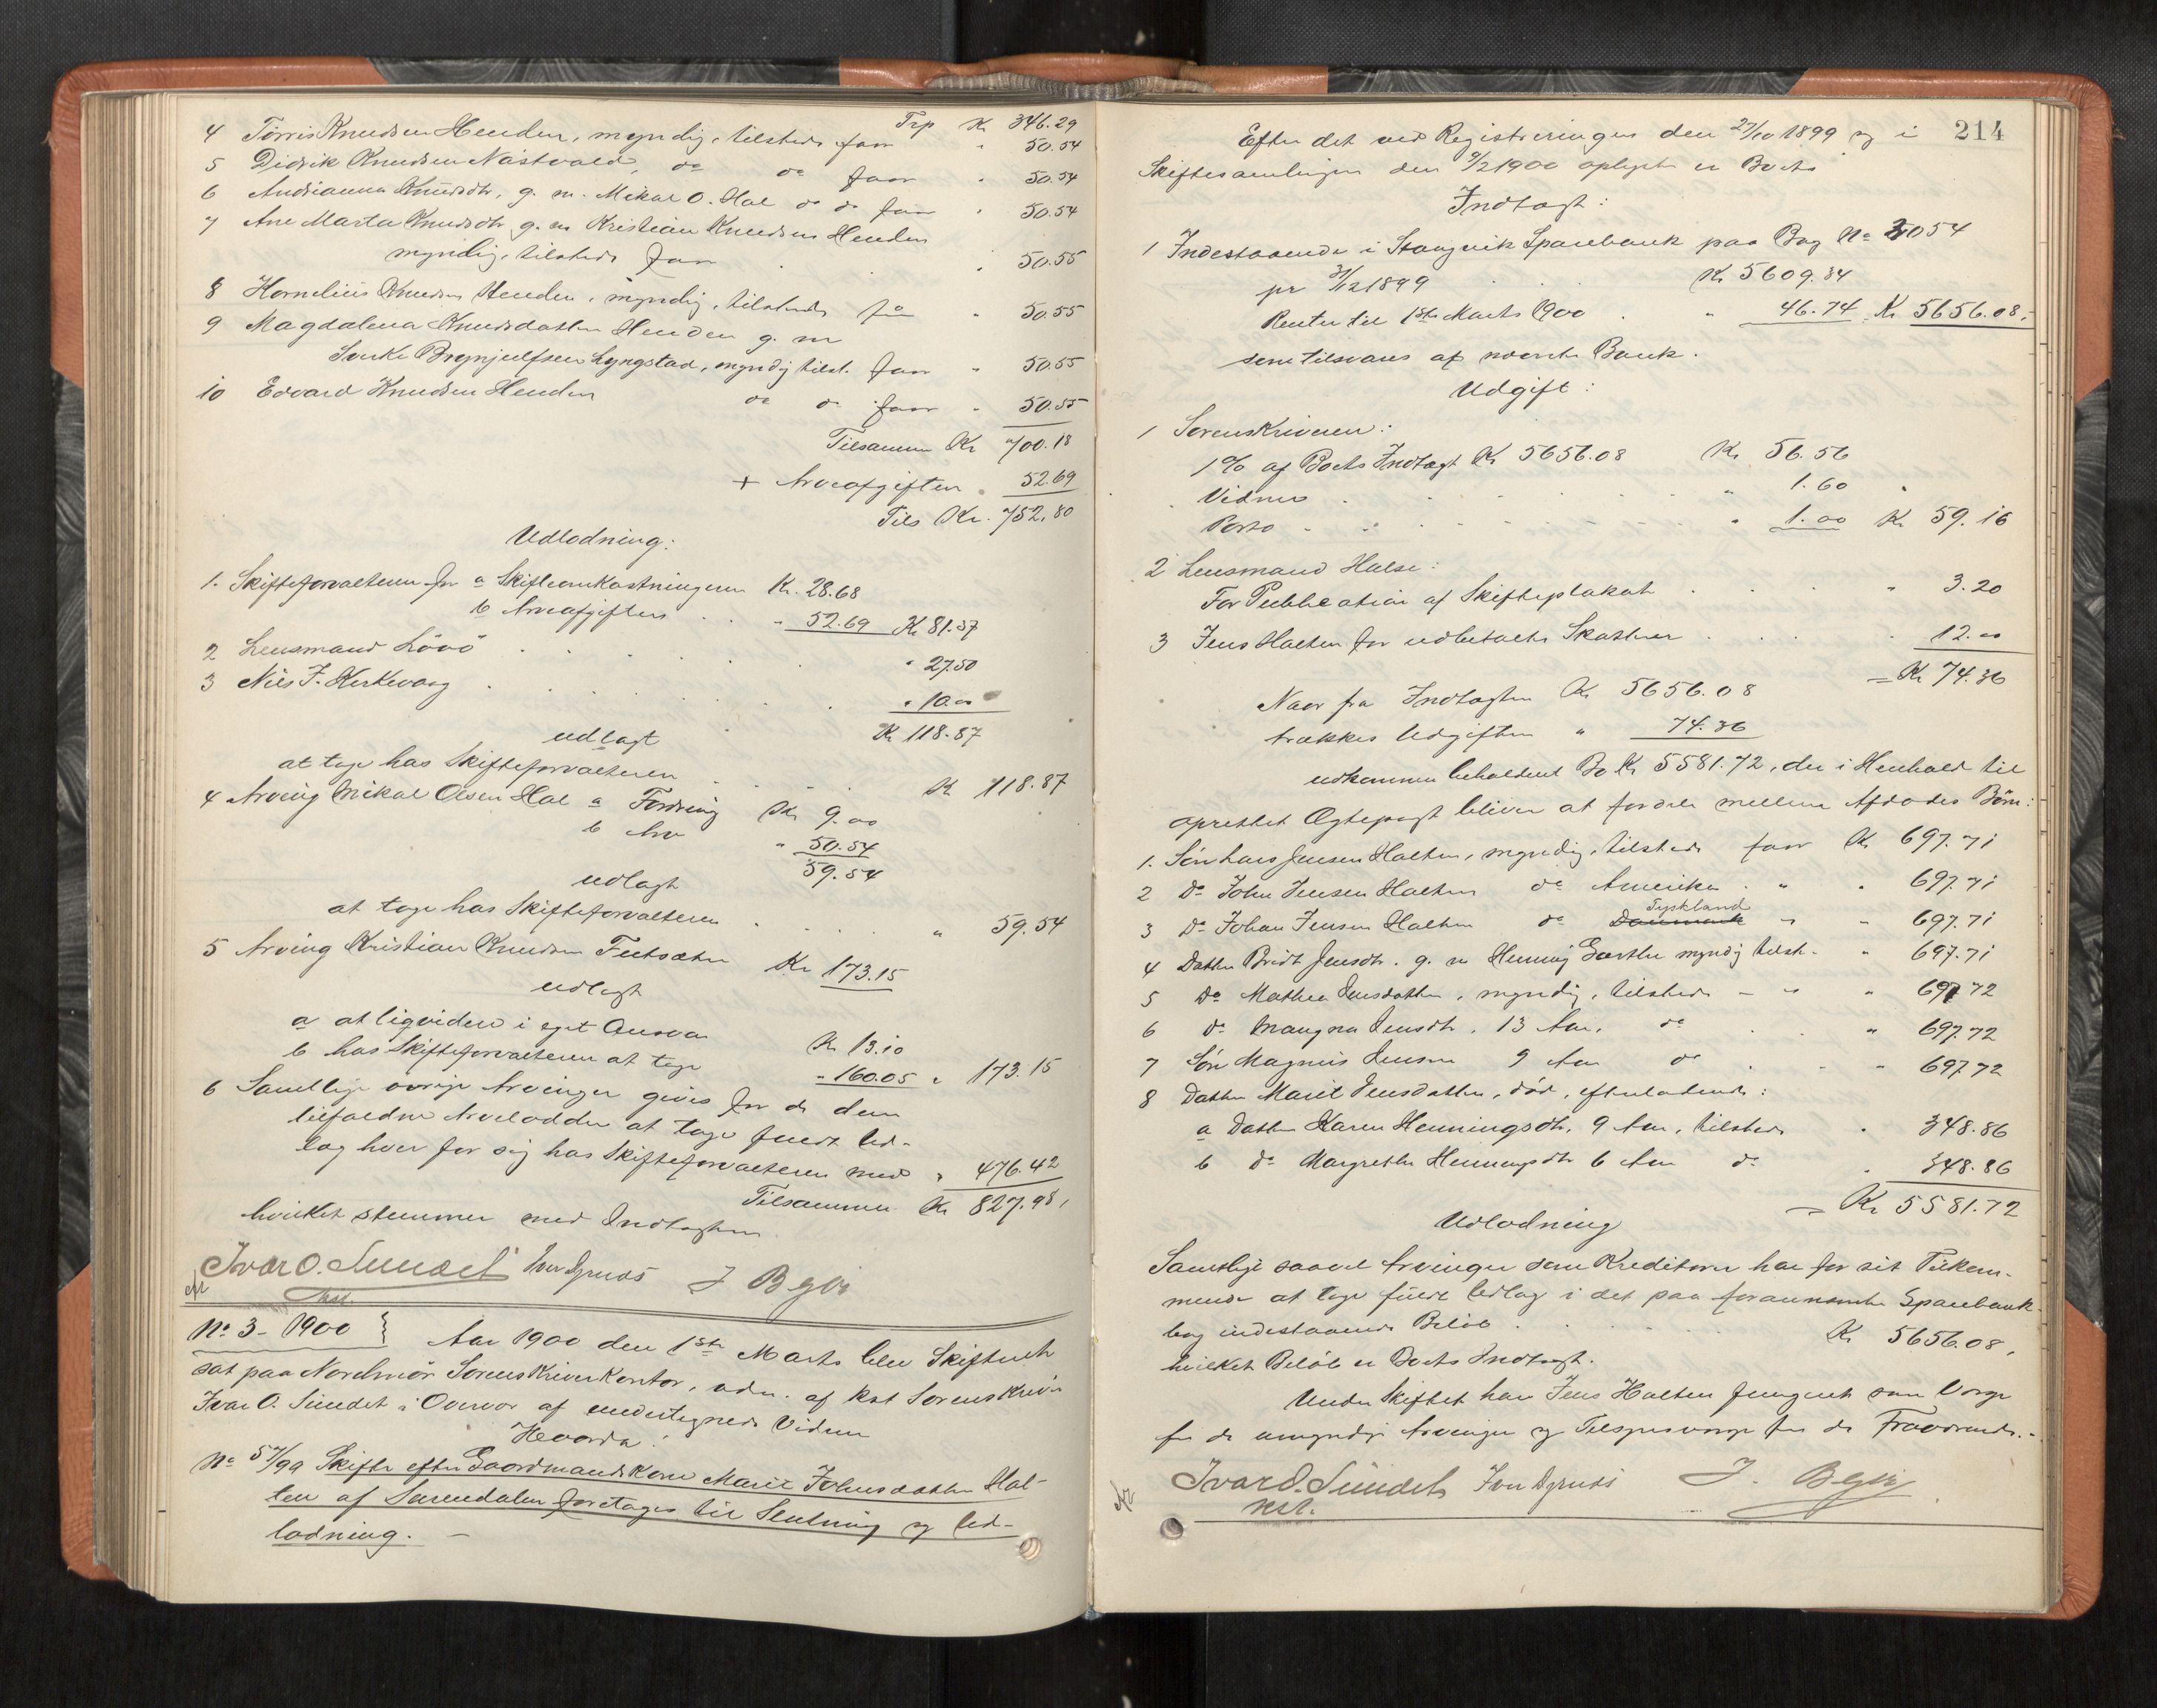 Trp Kr 346.29
4 Tørris Knudsen Henden, myndig, tilstede faar " 50.54
5 Didrik Knudsen Nastvold, do do faar " 50.54
6 Andrianna Knudsdtr, g. m. Mikal O. Hal do do faar " 50.54
7 Ane Marta Knudsdtr g. m Kristian Knudsen Henden
myndig, tilstede faar " 50.55
8 Kornelius Knudsen Henden, myndig, tilstede får " 50.55
9 Magdalena Knudsdatter Henden g. m
Brynjulfsen Lyngstad, myndig tilst. faar " 50.55
10 Edvard Knudsen Henden do do faar " 50.55
Tilsammen Kr 700.18
+ Arveafgiften " 52.69
Tils Kr. 752.80
Udlodning:
1. Skifteforvalteren for a Skifteomkostningerne Kr. 28.68
b Arveafgiften " 52.69 Kr 81.37
2 Lensmand Lövö " 27.50
3 Nils J. Kirkevaag " 10.00
Kr 118.87
udlagt
at tage hos Skifteforvalteren Kr 118.87
4 Arving Mikal Olsen Hal a Fordring Kr 9.00
b Arv " 50.54
59.54
udlagt
at tage hos Skifteforvalteren " 59.54
5 Arving Kristian Knudsen Kr 173.15
udlagt
a at liqvidere i eget Ansvar Kr 13.10
b hos Skifteforvalteren at tage " 160.05 " 173.15
6 Samtlige øvrige Arvinger gives for de dem
tilfaldne Arvelodder at tage fuldt Ud-
lag hver for sig hos Skifteforvalteren med " 476.42
Tilsammen Kr 827.98,
hvilket stemmer med Indtægten
Ivar O. Sundet J Bgvi
kst.
No 3 - 1900 } Aar 1900 den 1ste Marts blev Skifteret
sat paa Nordmör Sorenskriverkontor, adm. af kst Sorenskriver
Ivar O. Sundet i Overvær af undertegnede Vidner
Hvorda:
No 57/99 Skifte efter Gaardmandskone Marit Johnsdatter Hal-
ten af Surendalen foretages til Slutning og Ud-
lodning. —
214
Efter det ved Registreringen den 27/10 1899 og i
Skiftesamlingen den 9/2 1900 oplyste er Boets
Indtægt:
1 Indestaaende i Stangvik Sparebank paa Bog No 2054
pr 31/12 1899 Kr 5609.34
Renter til 1ste Marts 1900 " 46.74 Kr 5656.08,
som tilsvares af nævnte Bank.
Udgift:
1 Sorenskriveren:
1% af Boets Indtægt Kr 5656.08 Kr 56.56
Vidner " 1.60
Porto " 1.00 Kr 59.16
2 Lensmand Halse:
For Publication af Skifteplakat " 3.20
3 Jens Halten for udbetalte Skatter " 12.00
= Kr 74.36
Naar fra Indtægten Kr 5656.08
trækkes Udgiften " 74.36
udkommer beholdent Bo Kr 5581.72, der i Henhold til
oprettet Ægtepagt bliver at fordele mellem Afdödes Börn:
1. Sön Lars Jensen Halten, myndig, tilstede faar Kr 697.71
2 Do John Jensen Halten do Amerika " " 697.71
Tyskland
3 Do Johan Jensen Halten do Danmark " " 697.71
4 Datter Bridt Jensdtr. g. m Henning myndig tilst. " 697.71
5 Do Mathea Jensdatter, myndig, tilstede " " 697.72
6 do Magna Jensdtr, 13 Aar, do " 697.72
7 Sön Magnus Jensen 9 Aar do " 697.72
8 Datter Marit Jensdatter, död, efterladende:
a Datter Karen Henningsdtr, 9 Aar, tilstede " 348.86
b do Margrethe Henningsdtr 6 Aar do " 348.86
= Kr 5581.72
Udlodning
Samtlige saavel Arvinger som Kreditorer har for sit Tilkom-
mende at tage fuldt Udlag i det paa forannævnte Sparebank-
bog indestaaende Belöb Kr 5656.08,
hvilket Belöb er Boets Indtægt.
Under Skiftet har Jens Halten fungeret som Værge
for de umyndige Arvinger og Tilsynsværge for de Fraværende.-
Ivar O. Sundet J. Bgvi
kst.